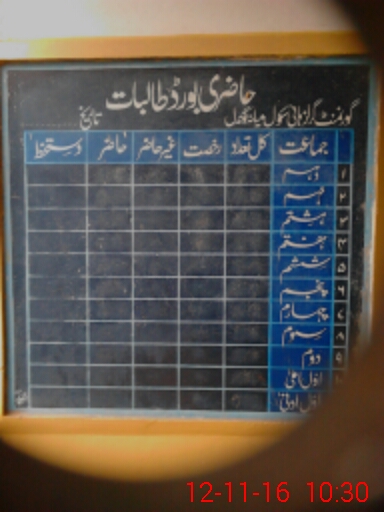 حاضری بورڈ طالبات
گورنمنٹ گرلز ہائی سکول تاریخ
جماعت کل تعداد رخصت غیر حاضر حاضر دستخط
۱ دہم
۲ نہم
۳ ہشتم
۴ ہفتم
۵ ششم
۶ پنجم
۷ چہارم
۸ سوم
۹ دوم
اول اعلیٰ
اول ادنیٰ
12-11-16 10:30